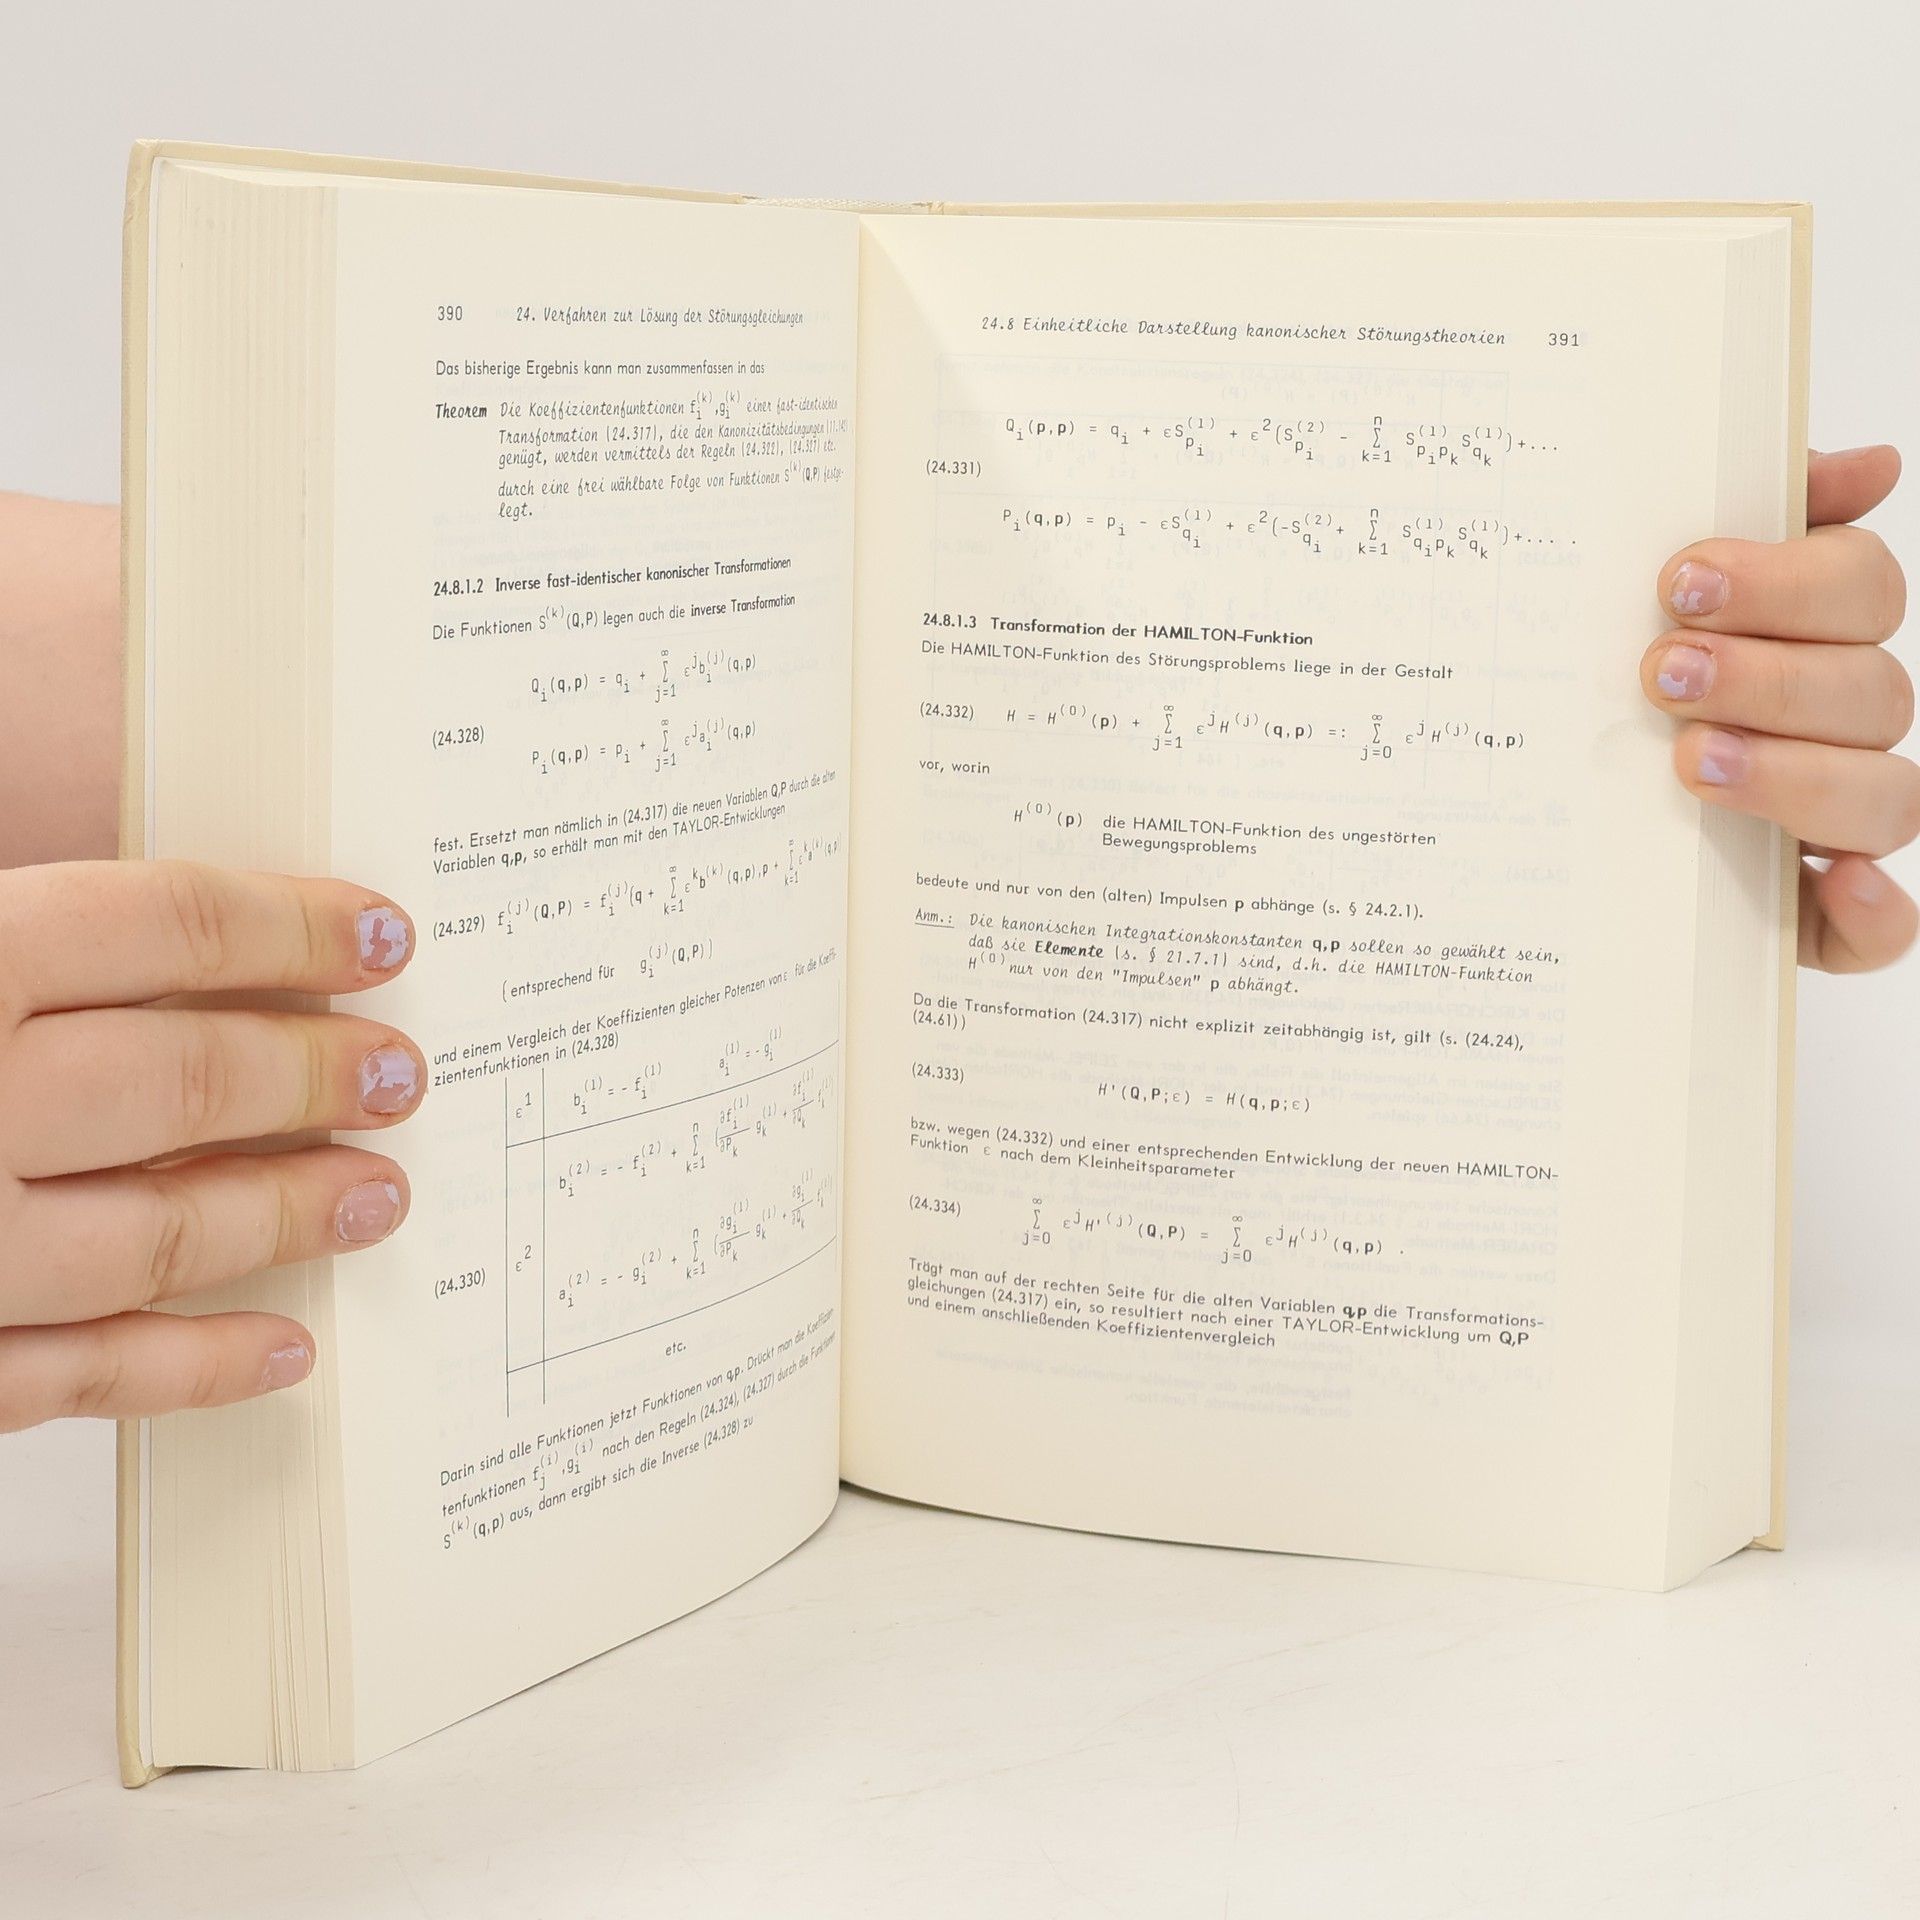 390 24. Verfahren zur Lösung der Störungsgleichungen
Das bisherige Ergebnis kann man zusammenfassen in das
Theorem Die Koeffizientenfunktionen f_i^(k), g_i^(k) einer fast-identischen
Transformation (24.317), die den Kanonizitätsbedingungen
genügt, werden vermittels der Regeln (24.322), (24.327) etc.
durch eine frei wählbare Folge von Funktionen S^(k)(Q,P) festge-
legt.
24.8.1.2 Inverse fast-identischer kanonischer Transformationen
Die Funktionen S^(k)(Q,P) legen auch die inverse Transformation
Q_i(q,p) = q_i + Σ_{j=1}^∞ ε^j b_i^(j)(q,p)
(24.328)
P_i(q,p) = p_i + Σ_{j=1}^∞ ε^j a_i^(j)(q,p)
fest. Ersetzt man nämlich in (24.317) die neuen Variablen Q,P durch die alten
Variablen q,p, so erhält man mit den TAYLOR-Entwicklungen
(24.329) f_i^(j)(Q,P) = f_i^(j)(q + Σ_{k=1}^∞ ε^k b^(k)(q,p), p + Σ_{k=1}^∞ ε^k a^(k)(q,p)
(entsprechend für g_i^(j)(Q,P))
und einem Vergleich der Koeffizienten gleicher Potenzen von ε für die Koeffi-
zientenfunktionen in (24.328)
ε^1 b_i^(1) = - f_i^(1) a_i^(1) = - g_i^(1)
b_i^(2) = - f_i^(2) + Σ_{k=1}^n (∂f_i^(1)/∂P_k g_k^(1) + ∂f_i^(1)/∂Q_k f_k^(1)
(24.330) ε^2
a_i^(2) = - g_i^(2) + Σ_{k=1}^n (∂g_i^(1)/∂P_k g_k^(1) + ∂g_i^(1)/∂Q_k f_k^(1)
etc.
Darin sind alle Funktionen jetzt Funktionen von q,p. Drückt man die Koeffizien-
tenfunktionen f_j^(i), g_i^(i) nach den Regeln (24.324), (24.327) durch die Funktionen
S^(k)(q,p) aus, dann ergibt sich die Inverse (24.328) zu
24.8 Einheitliche Darstellung kanonischer Störungstheorien 391
Q_i(p,p) = q_i + εS_{p_i}^(1) + ε^2(S_{p_i}^(2) - Σ_{k=1}^n S_{p_i p_k}^(1) S_{q_k}^(1))+...
(24.331)
P_i(q,p) = p_i - εS_{q_i}^(1) + ε^2(-S_{q_i}^(2) + Σ_{k=1}^n S_{q_i p_k}^(1) S_{q_k}^(1))+... .
24.8.1.3 Transformation der HAMILTON-Funktion
Die HAMILTON-Funktion des Störungsproblems liege in der Gestalt
(24.332) H = H^(0)(p) + Σ_{j=1}^∞ ε^j H^(j)(q,p) =: Σ_{j=0}^∞ ε^j H^(j)(q,p)
vor, worin
H^(0)(p) die HAMILTON-Funktion des ungestörten
Bewegungsproblems
bedeute und nur von den (alten) Impulsen p abhänge (s. § 24.2.1).
Anm.: Die kanonischen Integrationskonstanten q,p sollen so gewählt sein,
daß sie Elemente (s. § 21.7.1) sind, d.h. die HAMILTON-Funktion
H^(0) nur von den "Impulsen" p abhängt.
Da die Transformation (24.317) nicht explizit zeitabhängig ist, gilt (s. (24.24),
(24.61))
(24.333) H'(Q,P;ε) = H(q,p;ε)
bzw. wegen (24.332) und einer entsprechenden Entwicklung der neuen HAMILTON-
Funktion ε nach dem Kleinheitsparameter
(24.334) Σ_{j=0}^∞ ε^j H'^(j)(Q,P) = Σ_{j=0}^∞ ε^j H^(j)(q,p) .
Trägt man auf der rechten Seite für die alten Variablen q,p die Transformations-
gleichungen (24.317) ein, so resultiert nach einer TAYLOR-Entwicklung um Q,P
und einem anschließenden Koeffizientenvergleich